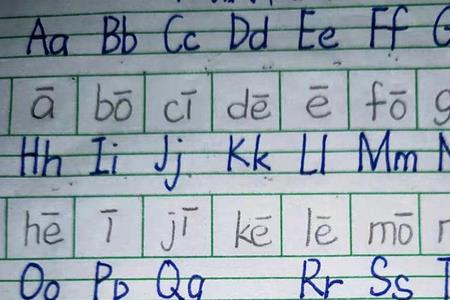 Aa Bb Cc Dd Ee Ff G
ā bō cī dē ē fō g
Hh Ii Jj Kk Ll Mm N
hē ī jī kē lē mō n
Oo Pp Qq Rr Ss T